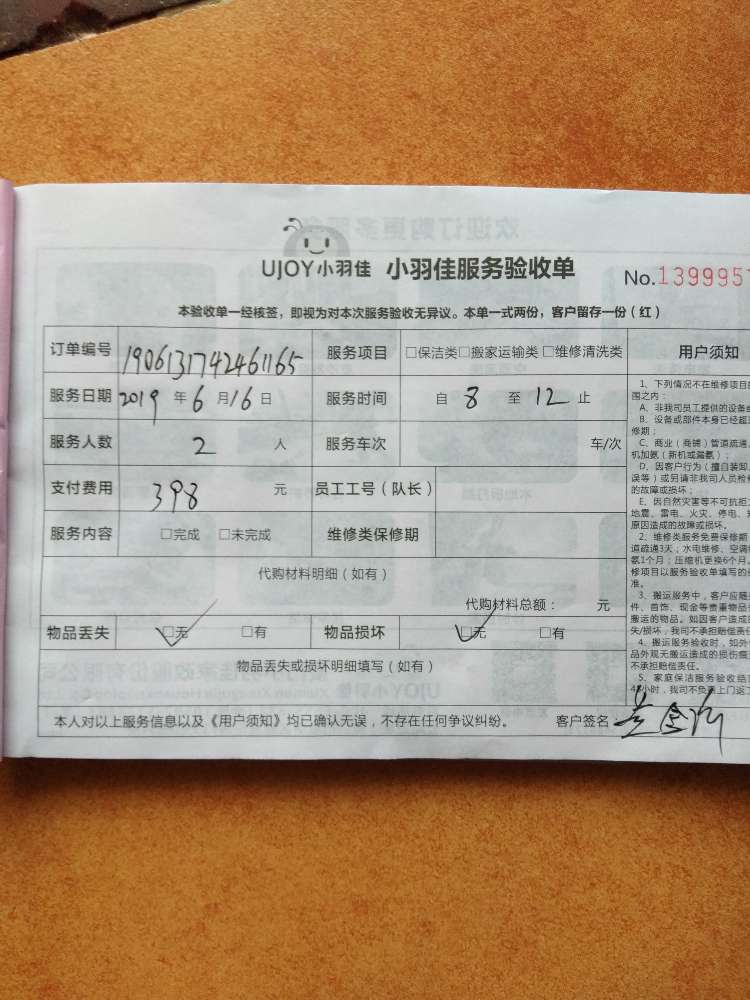 UJOY小羽佳 小羽佳服务验收单 No.139995
本验收单一经核签，即视为对本次服务验收无异议。本单一式两份，客户留存一份（红）
订单编号 190613174246165 服务项目 □保洁类□搬家运输类 □维修清洗类
服务日期 2019 年 6 月 16 日 服务时间 自 8 至 12 止
服务人数 2 人 服务车次 车/次
支付费用 398 元 员工工号（队长）
服务内容 □完成 □未完成 维修类保修期
代购材料明细（如有）
代购材料总额： 元
物品丢失 ☑无 □有 物品损坏 ☑无 □有
物品丢失或损坏明细填写（如有）
本人对以上服务信息以及《用户须知》均已确认无误，不存在任何争议纠纷。 客户签名
用户须知
1、下列情况不在维修项目
围之内：
A、非我司员工提供的设备
B、设备或部件本身已经超
修期；
C、商业（商铺）管道疏通、
机加氨（新机或漏氨）；
D、因客户行为（擅自装卸、
误等）或另请非我司人员检
的故障或损坏；
E、因自然灾害等不可抗拒
地震、雷电、火灾、停电、
原因造成的故障或损坏。
2、维修类服务免费保修期
道疏通3天；水电维修、空调
氨1个月；压缩机更换6个月。
修项目以服务验收单填写的
准。
3、搬运服务中，客户应随
件、首饰、现金等贵重物品
搬运的物品。如因客户造成
失/损坏，我司不承担赔偿责任
4、搬运服务验收时，如外
品外观无搬运造成的损伤痕
不承担赔偿责任。
5、家庭保洁服务验收结
48小时，我司不负责上门返工